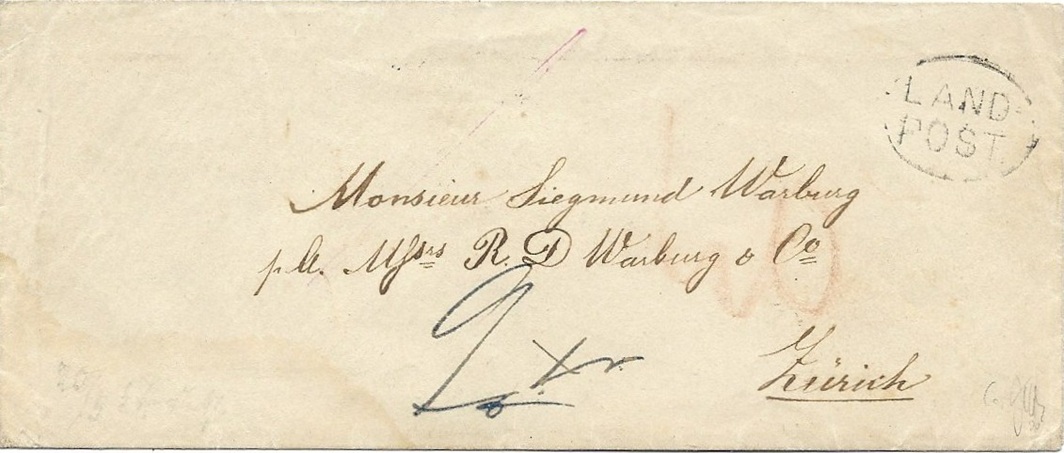 LAND
POST.
Monsieur Siegmund Warburg
p. A. Messrs R. D Warburg & Co
Zürich